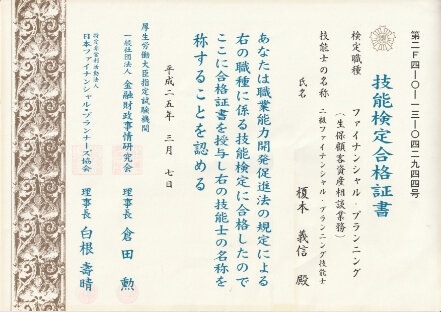 第二F四-〇-一三-〇四二九四四号
技能検定合格証書
検定職種 ファイナンシャル・プランニング
(生保顧客資産相談業務)
技能士の名称 二級ファイナンシャル・プランニング技能士
氏名 榎本 義信 殿
あなたは職業能力開発促進法の規定による
右の職種に係る技能検定に合格したので
ここに合格証書を授与し右の技能士の名称を
称することを認める
平成二五年 三月 七日
厚生労働大臣指定試験機関
一般社団法人 金融財政事情研究会 理事長 倉田 勲
指定非営利活動法人
日本ファイナンシャル・プランナーズ協会 理事長 白根 壽晴